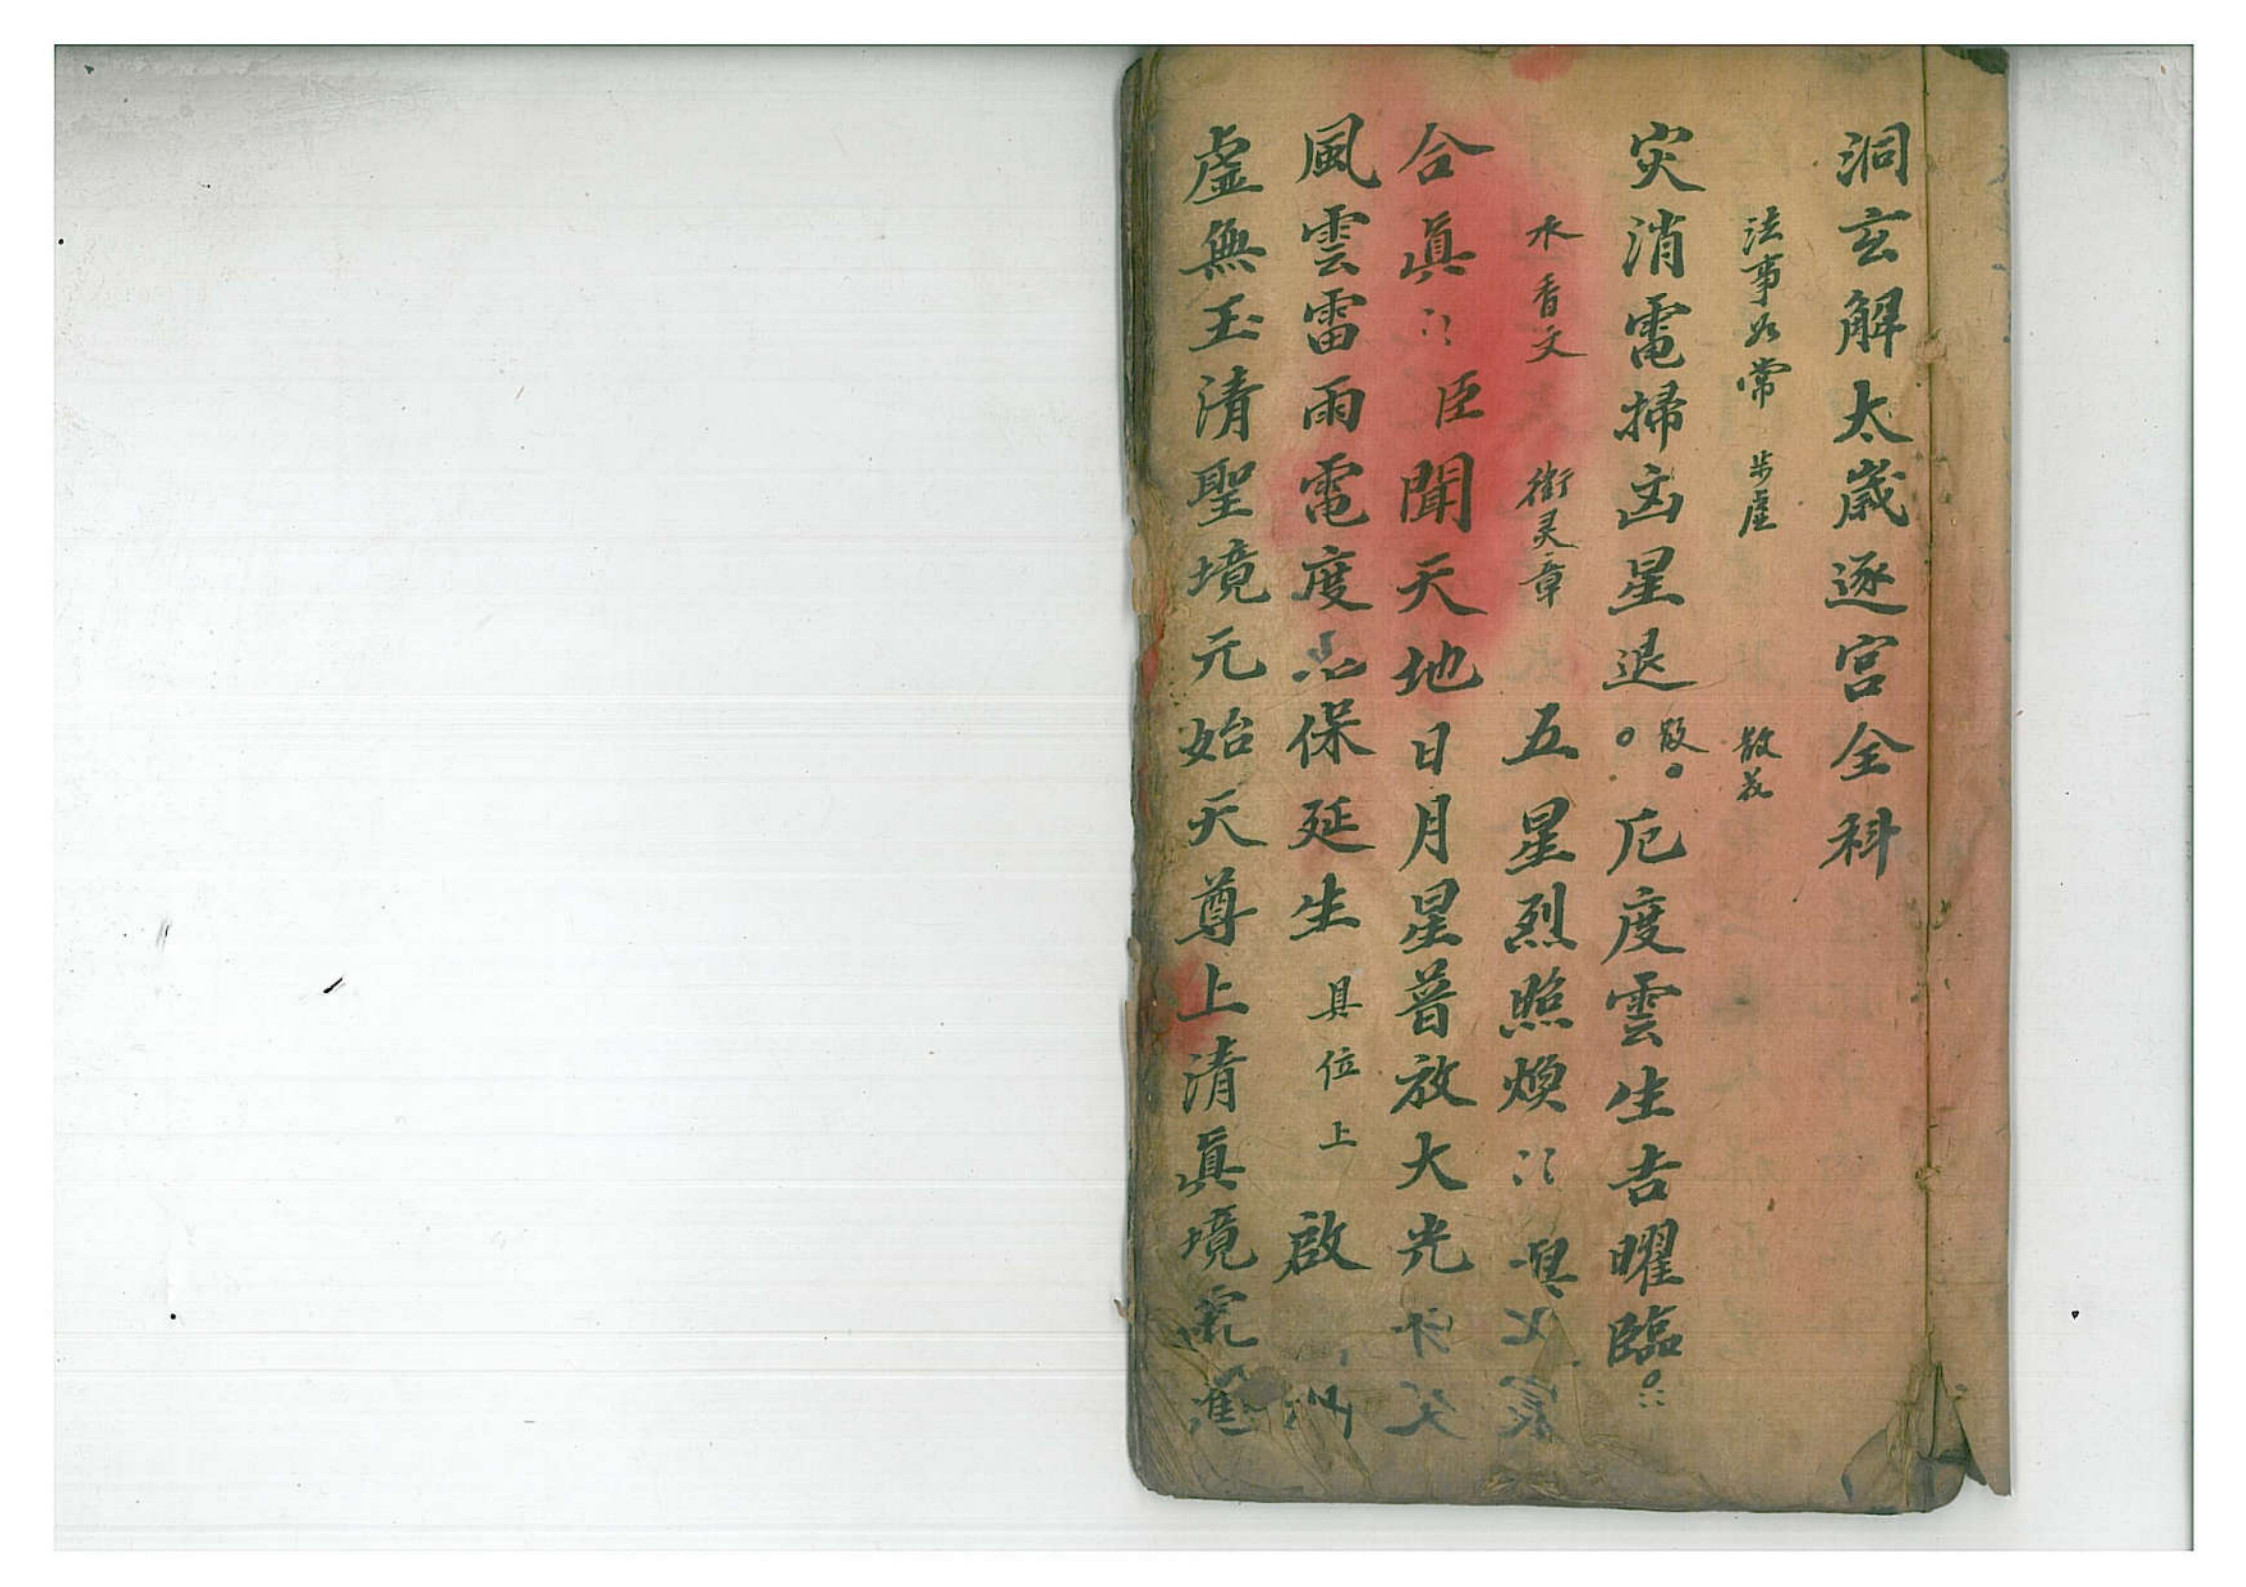 洞玄解太歲逐宮全科
法事如常 步虛 散花
灾消電掃凶星退 散 厄度雲生吉曜臨
水 香文 衛灵章 五星烈照煥
合真 臣聞天地日月星普放大光
風雲雷雨電度 保延生 具位上 啟
虛無玉清聖境元始天尊上清真境